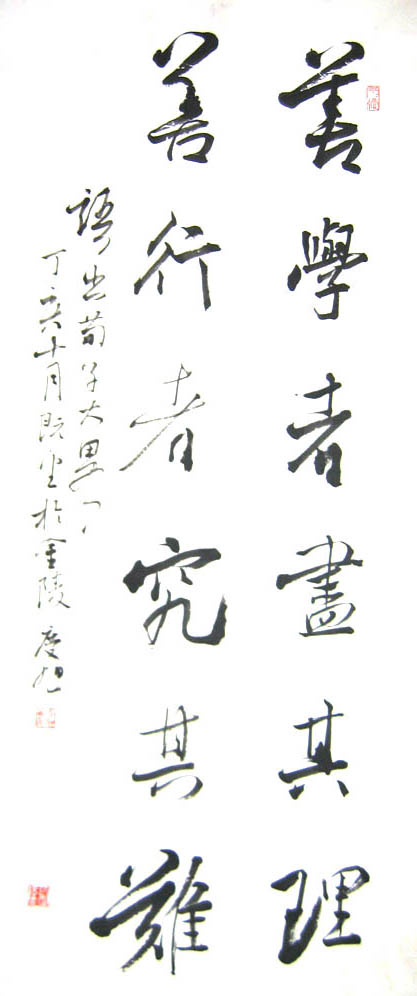 善學者盡其理
善行者究其難
語出荀子大畧
丁亥十月既望於金陵 慶旭